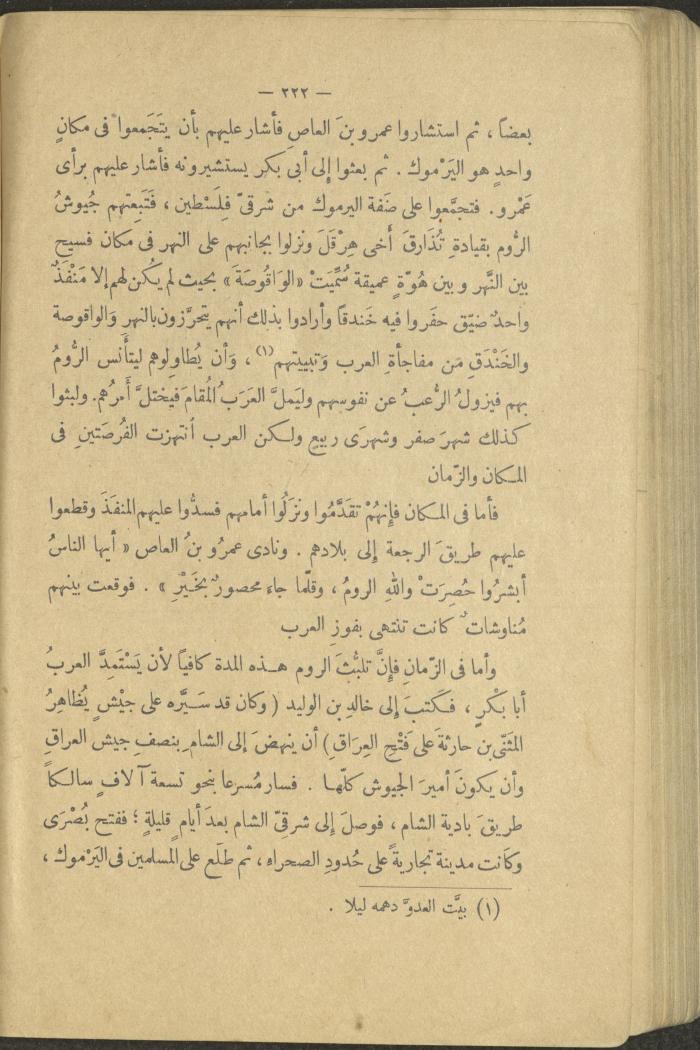 — ٢٢٢ —
بعضاً ، ثم استشاروا عمرو بنَ العاصِ فأشار عليهم بأن يَتَجَمعوا فى مكانٍ
واحدٍ هو اليَرْموك . ثم بعثوا إلى أبى بكر يستشيرونه فأشار عليهم برأى
عَمْرو . فتجمَّعوا على ضَفة اليرموك من شرقىّ فِلَسْطين ، فَتَبِعتهم جُيوشُ
الرُّوم بقيادةِ تُذَارِقَ أَخى هِرْقَلَ ونزلوا بجانبهم على النهر فى مكان فسيح
بين النَّهر وبين هُوّةٍ عميقة سُمِّيَتْ «الوَاقُوصَةَ» بحيث لم يكُن لهم إلا مَنْفَذٌ
واحدٌ ضيّق حفَروا فيه خَندقاً وأرادوا بذلك أنهم يتحرَّزون بالنهر وَالواقوصة
والخَنْدَقِ مَن مفاجأةِ العرب وَتبييتهم(١) ، وَأن يُطاوِلوهم ليتأَنس الرُّومُ
بهم فيزولُ الرُّعبُ عن نفوسهم وليَملَّ العَرَبُ المُقامَ فيختلَّ أَمرُهم. ولبثوا
كذلك شهرَ صفر وشهرَى ربيع ولكن العرب انتهزت الفُرصَتينِ فى
المكان والزّمان
فأما فى المكان فإنهُمْ تقدَّمُوا ونزَلُوا أمامهم فسدُّوا عليهم المنفَذَ وقطعوا
عليهم طريقَ الرجعة إلى بلادهم . ونادى عمرُو بنُ العاص « أيها الناسُ
أبشرُوا حُصِرَتْ واللهِ الرومُ ، وقلّما جاءَ محصورٌ بخَيْرٍ » . فوقعت بينهم
مُناوشاتٌ كانت تنتهى بفوزِ العرب
وأما فى الزّمانِ فإنَّ تلبُّثَ الروم هــذه المدة كافياً لأن يَسْتَمِدَّ العربُ
أبا بَكْرٍ ، فكتبَ إلى خالدِ بن الوليد ( وكان قد سَيَّره على جيْشٍ يُظاهِرُ
المثَنّى بن حارثةَ على فَتْحِ العِرَاقِ) أن ينهضَ إلى الشام بنصفِ جيش العراقِ
وأن يكونَ أميرَ الجيوش كلّها . فسار مُسرعا بنحو تسعة آلافٍ سالكا
طريقَ بادية الشام ، فوصلَ إلى شرقىّ الشام بعدَ أيامٍ قليلةٍ ؛ ففتح بُصْرَى
وكانت مدينة تجاريةً على حُدودِ الصحراءِ، ثم طلَع على المسلمين فى اليَرْموك ،
(١) بيَّت العدوَّ دهمه ليلا .